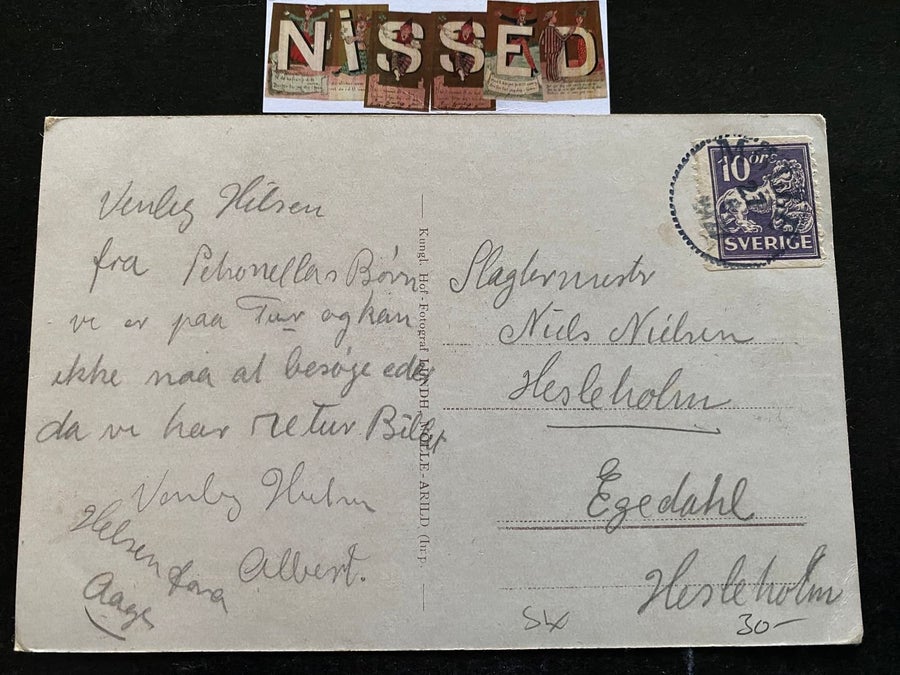 NISSED
Venlig Hilsen
fra Petronellas Børn
vi er paa Tur og kan
ikke naa at besøge eder
da vi har retur Billet
Venlig Hilsen
Albert.
Hilsen fra
Aage
Kungl. Hof-Fotograf LUNDH, MÖLLE-ARILD
10 öre
SVERIGE
27
Slagtermestr
Niels Nielsen
Hesleholm
Egedahl
Hesleholm
30-